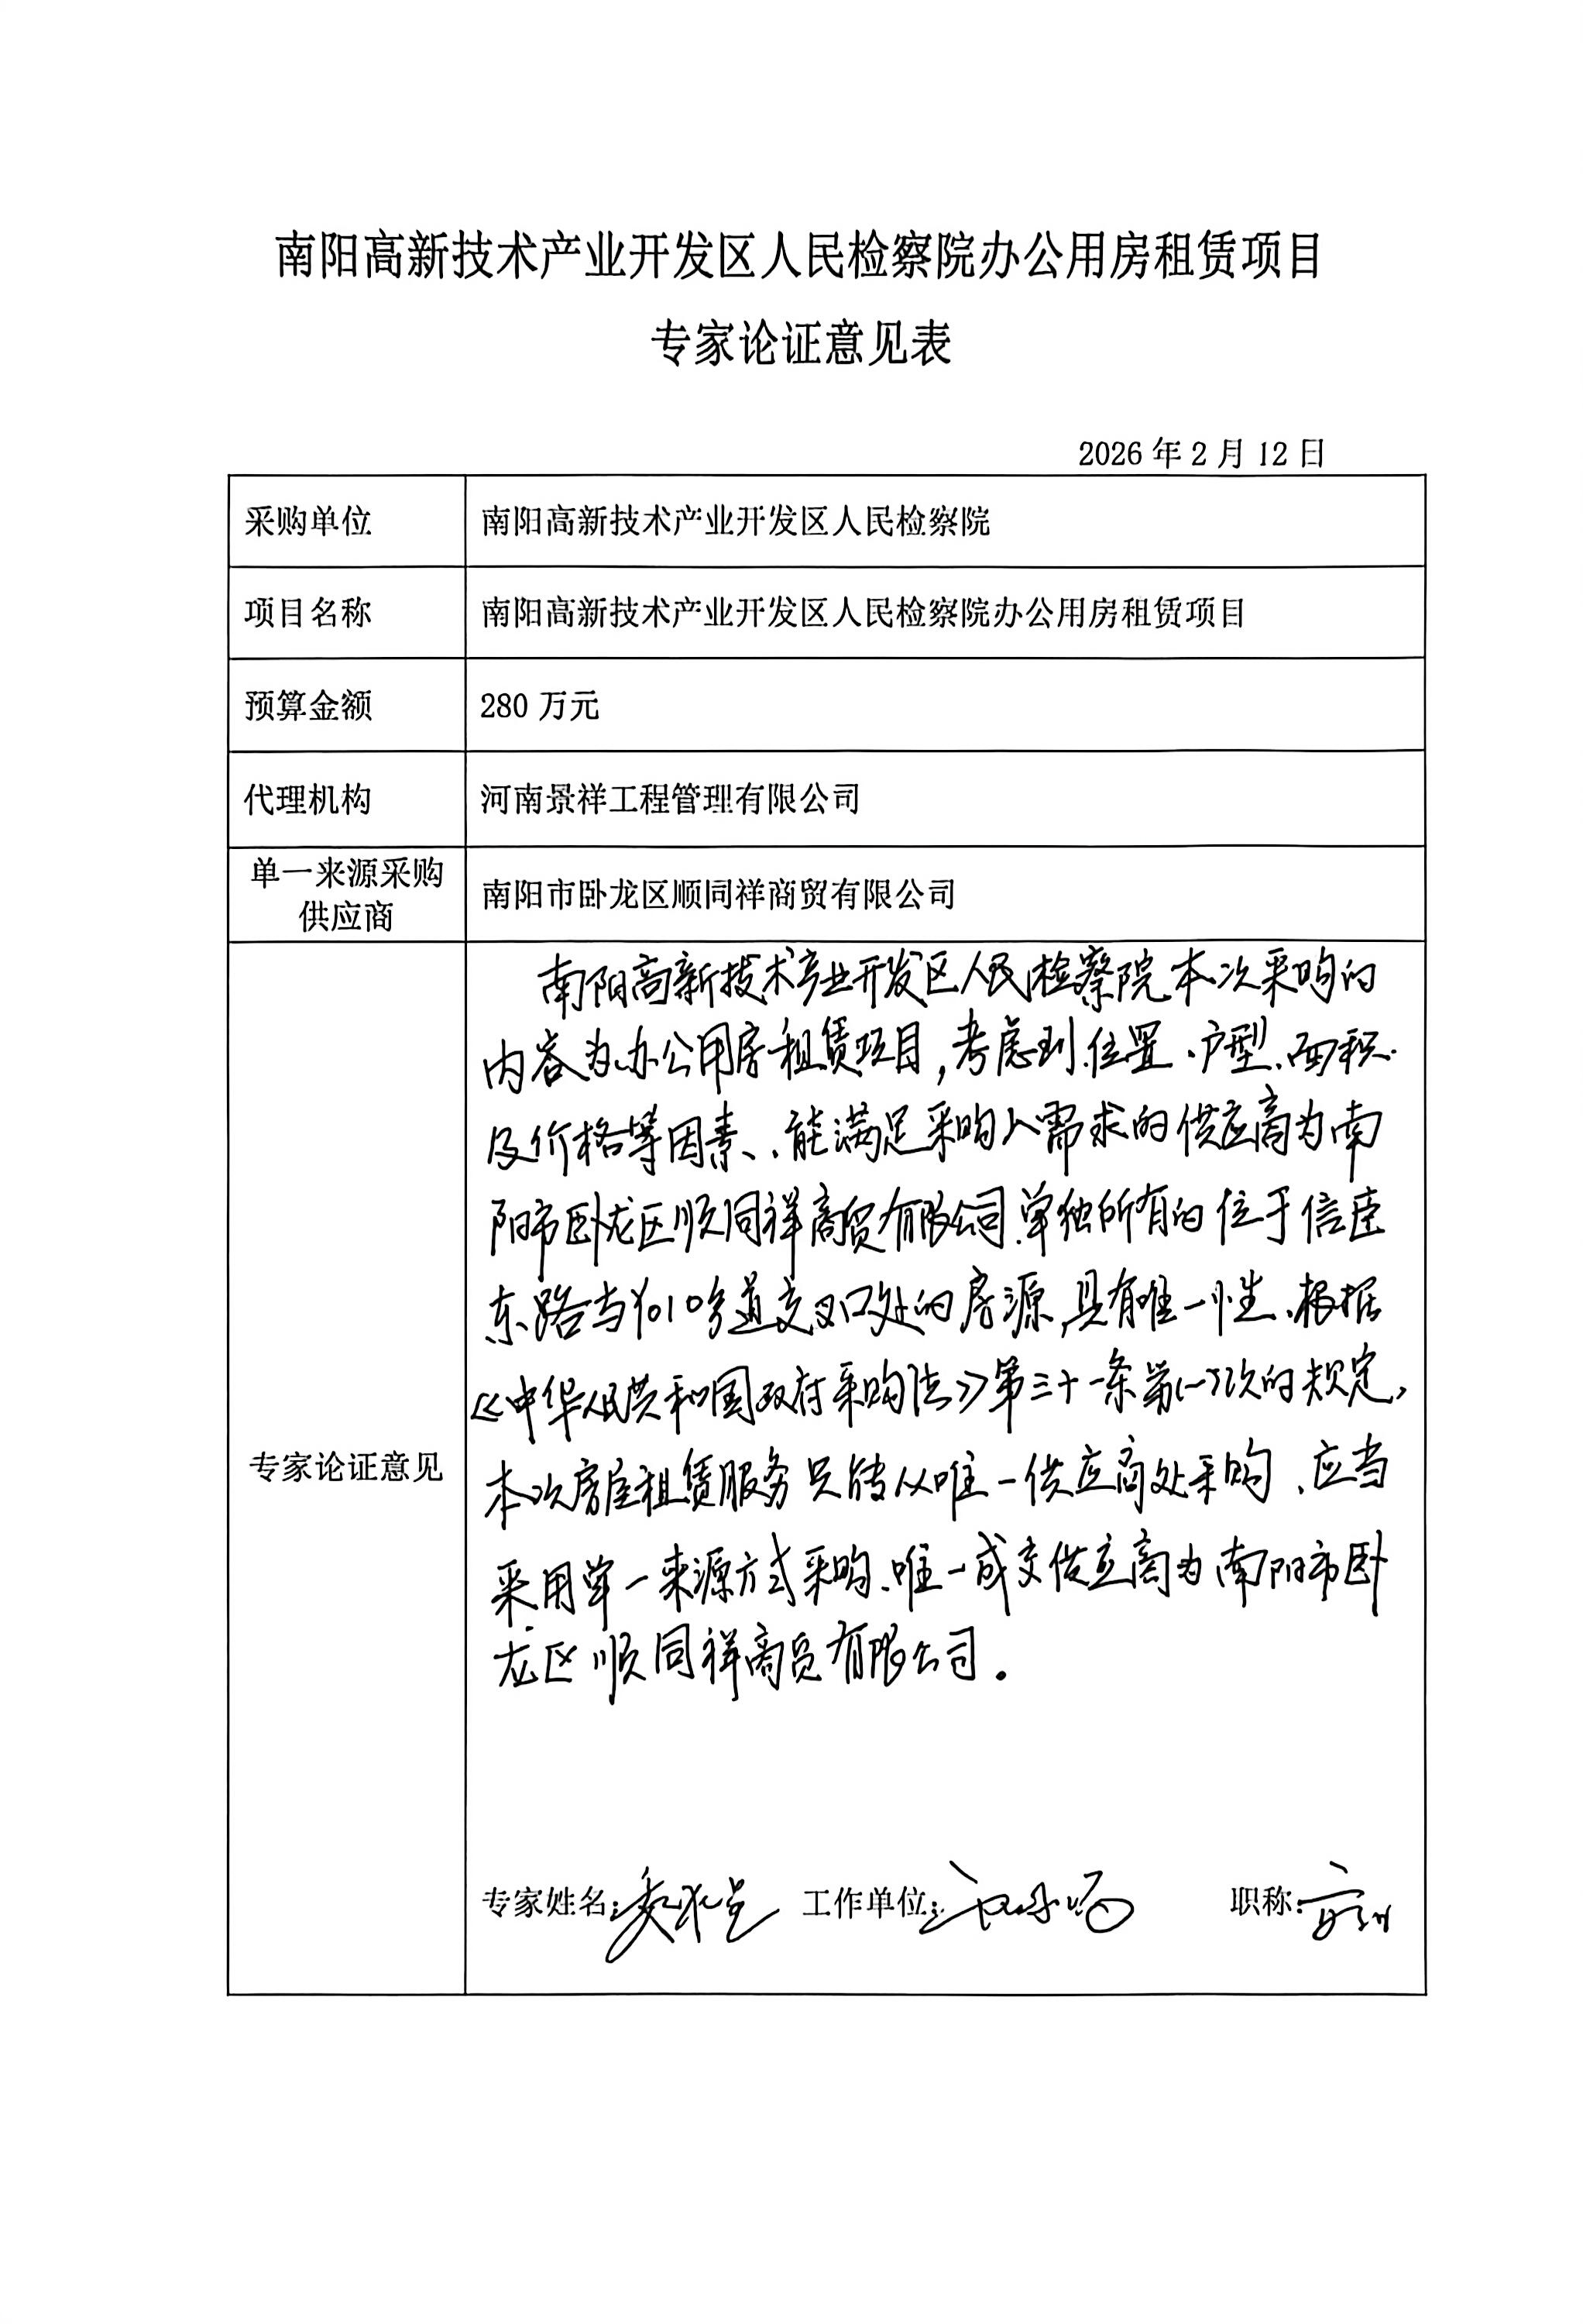 南阳高新技术产业开发区人民检察院办公用房租赁项目
专家论证意见表
2026年2月12日
采购单位 南阳高新技术产业开发区人民检察院
项目名称 南阳高新技术产业开发区人民检察院办公用房租赁项目
预算金额 280万元
代理机构 河南景祥工程管理有限公司
单一来源采购
供应商 南阳市卧龙区顺同祥商贸有限公司
专家论证意见
南阳高新技术产业开发区人民检察院本次采购的
内容为办公用房租赁项目,考虑到位置、户型、面积
及价格等因素、能满足采购人需求的供应商为南
阳市卧龙区顺同祥商贸有限公司单独所有的位于信臣
东路与 交叉口处的房源,具有唯一性、根据
《中华人民共和国政府采购法》第三十一条第(一)款的规定,
本次房屋租赁服务只能从唯一供应商处采购、应当
采用单一来源方式采购、唯一成交供应商为南阳市卧
龙区顺同祥商贸有限公司。
专家姓名: 工作单位: 职称: